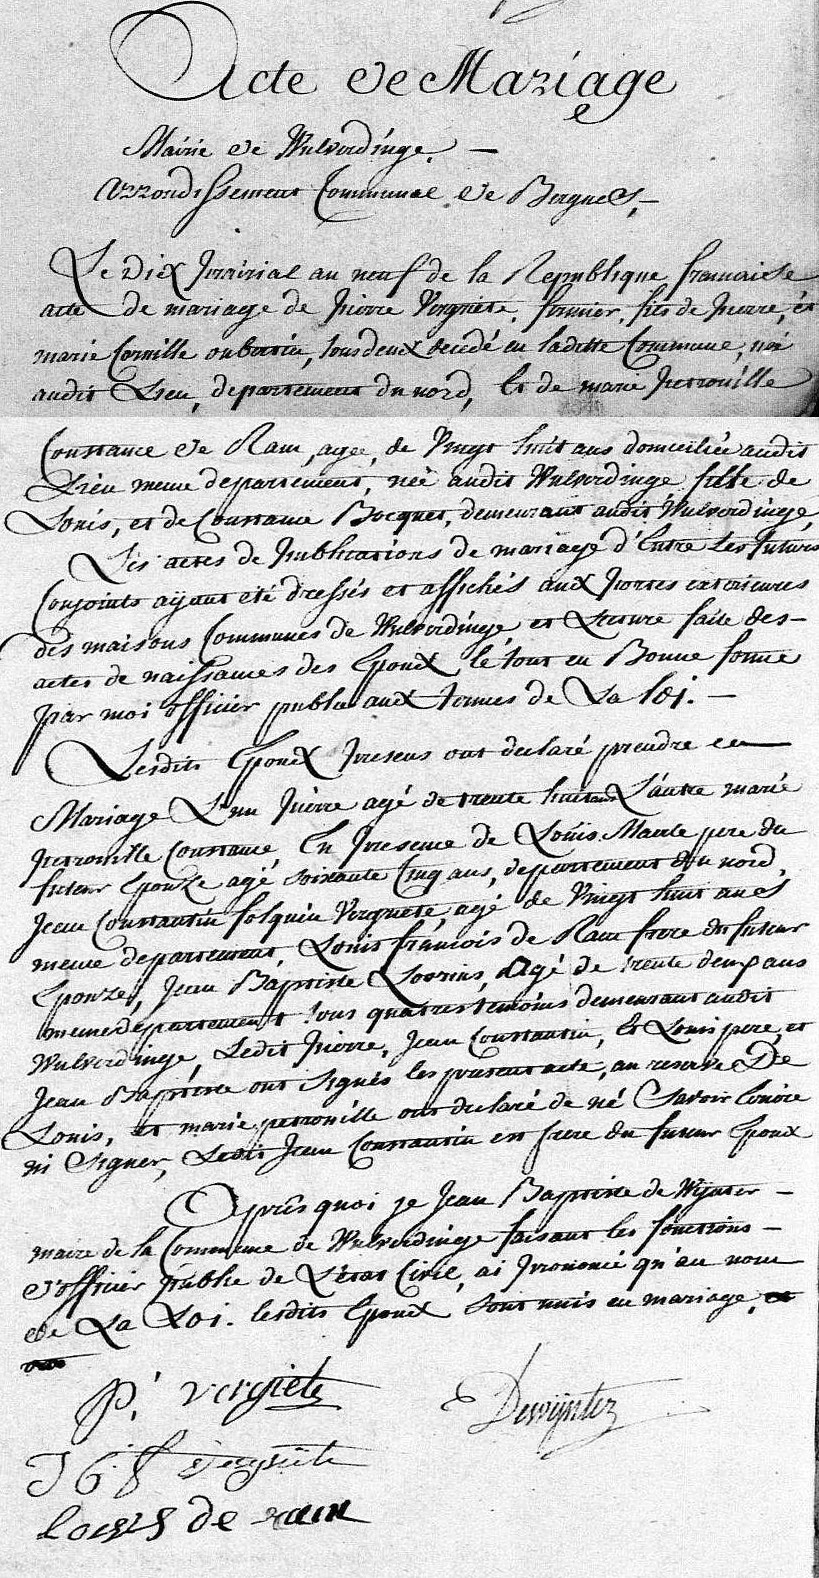 Acte de Mariage
Mairie de Wulverdinge. —
Arrondissement Communal de Bergues, —
Le Dix prairial an neuf de la Republique francaisse
acte de mariage de pierre Vergriete, fermier, fils de pierre, et
marie Cornille oubertin, tous deux decedé en ladite Commune, né
audit Lieu, departement du nord, Et de marie petronille
Constance de Ram, agee, de Vingt huit ans domiciliée audit
Lieu meme departement, née audit Wulverdinge fille de
Louis, et de Constance Bocquet, demeurant audit Wulverdinge,
Les actes de publications de mariage d'Entre Les futurs
Conjoints aÿant été dressés et affichés aux portes exterieures
des maisons Communes de Wulverdinge et Lecture faite des-
actes de naissances des Epoux, le tout en Bonne forme
par moi officier public aux termes de La loi. —
Lesdits Epoux presens ont declaré prendre en
Mariage L'un pierre agé de trente huit ans L'autre marie
petronille Constance, En presence de Louis pere du
futeur Epouze agé soixante Cinq ans, departement du nord,
Jean Constantin folquin Vergriete, agé de Vingt huit anes
meme departement, Louis francois de Ram frere du futeur
Epouze, Jean Baptiste Agé de trente deux ans
meme departement tous quatres temoins demeurant audit
Wulverdinge, Ledit pierre, Jean Constantin, Et Louis pere, et
Jean Baptiste ont signés les present acte, au reserve De
Louis, et marie petronille ont declaré de né Savoir Ecrire
ni Signer, Ledit Jean Constantin est frere du futeur Epoux
Après quoi je Jean Baptiste de Wÿnter —
maire de la Commune de Wulverdinge faisant les fonctions —
d'officier public de L'état Civil, ai prononcé qu'au nom
de La Loi. lesdits Epoux sont unis en mariage,
P. vergriete
Dewÿnter
J C f vergriete
Louis de ram